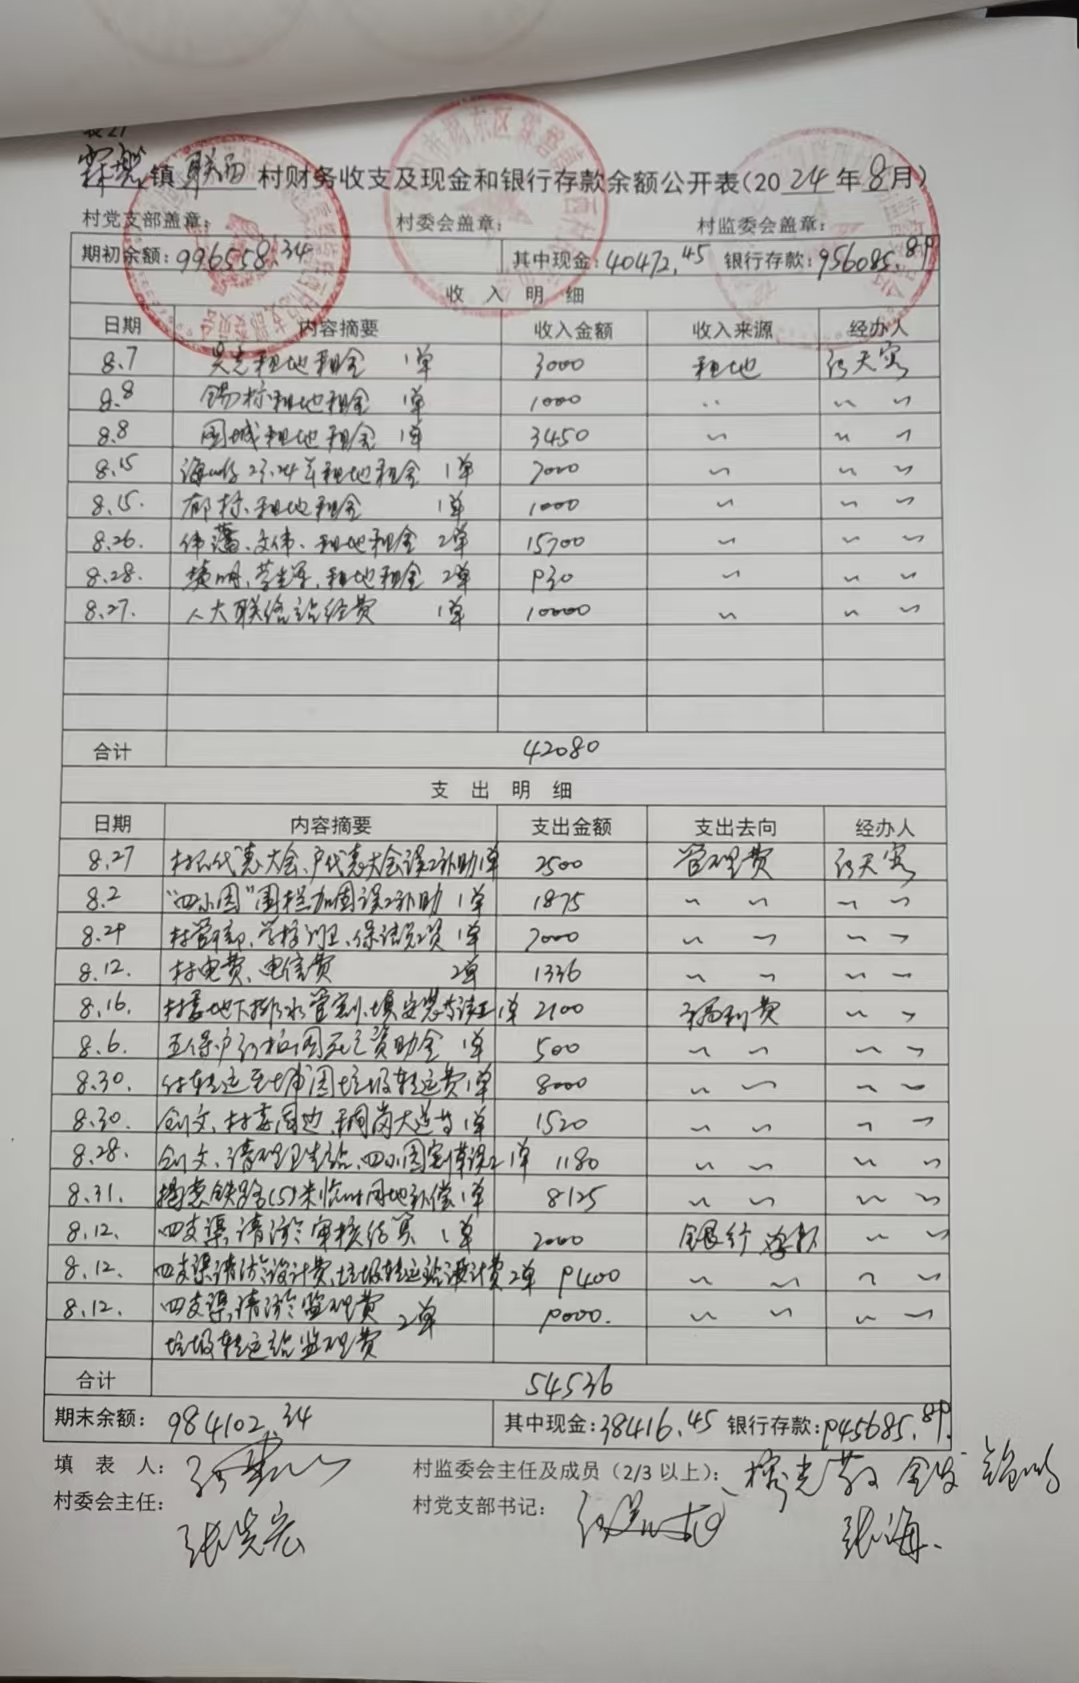 表27
霖磐镇 联西 村财务收支及现金和银行存款余额公开表(2024年8月)
村党支部盖章: 村委会盖章: 村监委会盖章:
期初余额:996558.34 其中现金:40472.45 银行存款:956085.89
收 入 明 细
日期 内容摘要 收入金额 收入来源 经办人
8.7 租地租金 1单 3000 租地
8.8 锡标租地租金 1单 1000
8.8 围城租地租金 1单 3450 〃 〃 〃
8.15 23.24年租地租金 1单 7000 〃 〃 〃
8.15. 租地租金 1单 1000 〃 〃 〃
8.26. 伟藩、文伟、租地租金 2单 15700 〃 〃 〃
8.28. 租地租金 2单 930 〃 〃 〃
8.27. 人大联络站经费 1单 10000 〃 〃 〃
合计 42080
支 出 明 细
日期 内容摘要 支出金额 支出去向 经办人
8.27 村民代表大会、户代表大会误工补助1单 2500 管理费
8.2 “四小园”围栏加固误工补助 1单 1875 〃 〃 〃 〃
8.29 学校门卫、保洁员工资 1单 7000 〃 〃 〃 〃
8.12. 村电费、电信费 2单 1336 〃 〃 〃 〃
8.16. 村委地下排水管 1单 2100 福利费 〃 〃
8.6. 五保户 资助金 1单 500 〃 〃 〃 〃
8.30. 付转运至埔田垃圾转运费1单 8000 〃 〃 〃 〃
8.30. 创文、村委周边 大道 1单 1520 〃 〃 〃 〃
8.28. 创文、清理卫生站、四小园割草误工1单 1180 〃 〃 〃 〃
8.31. 揭惠铁路(5)米临时用地补偿1单 8125 〃 〃 〃 〃
8.12. 四支渠清淤审核结算 1单 2000 银行 〃 〃
8.12. 四支渠清淤设计费、垃圾转运站设计费2单 9400 〃 〃 〃 〃
8.12. 四支渠清淤监理费 2单 9000. 〃 〃 〃 〃
垃圾转运站监理费
合计 54536
期末余额: 984102.34 其中现金:38416.45 银行存款:945685.89.
填 表 人: 村监委会主任及成员(2/3以上):
村委会主任: 村党支部书记:
张海